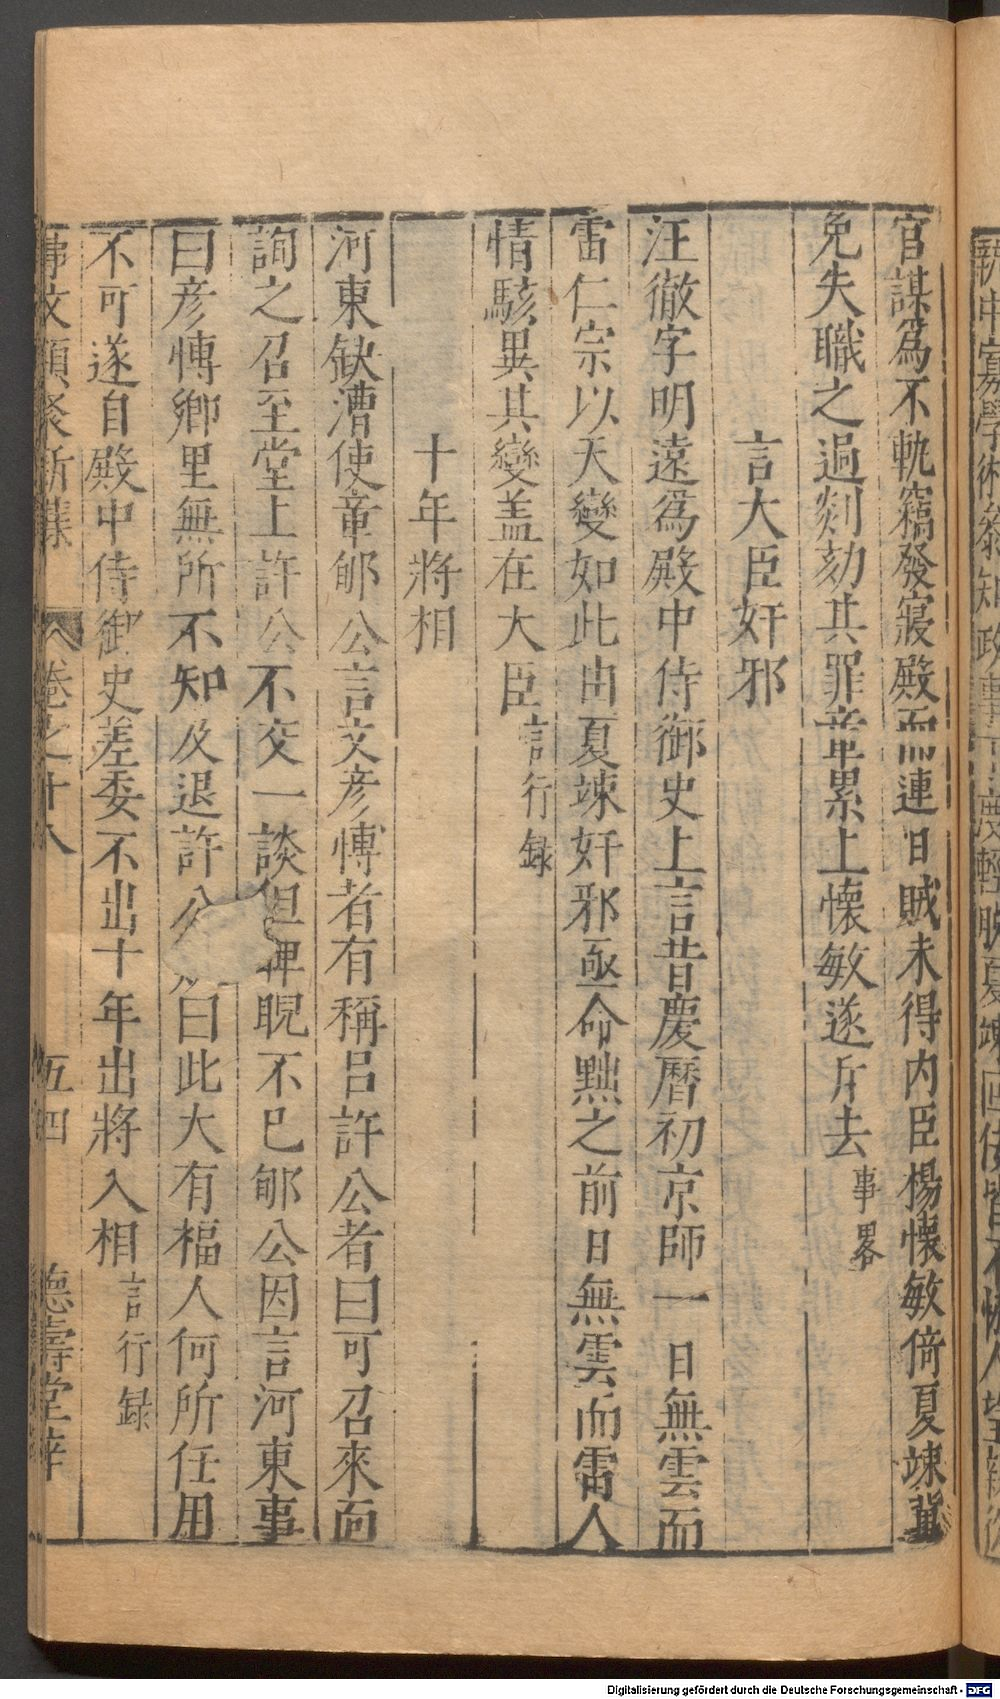 官謀爲不軌竊發寢殿而連日賊未得内臣楊懷敏倚夏竦冀
免失職之過剡劾其罪章累上懷敏遂斥去事畧
言大臣奸邪
汪徹字明遠爲殿中侍御史上言昔慶曆初京師一日無雲而
雷仁宗以天變如此由夏竦奸邪亟命黜之前日無雲而雷人
情駭異其變盖在大臣言行録
十年將相
河東缺漕使章郇公言文彦博者有稱吕許公者曰可召來面
詢之召至堂上許公不交一談但睥睨不已郇公因言河東事
曰彦博鄉里無所不知及退許公曰此大有福人何所任用
不可遂自殿中侍御史差委不出十年出將入相言行録
卷之十八
五四
德壽堂梓
Digitalisierung gefördert durch die Deutsche Forschungsgemeinschaft - DFG